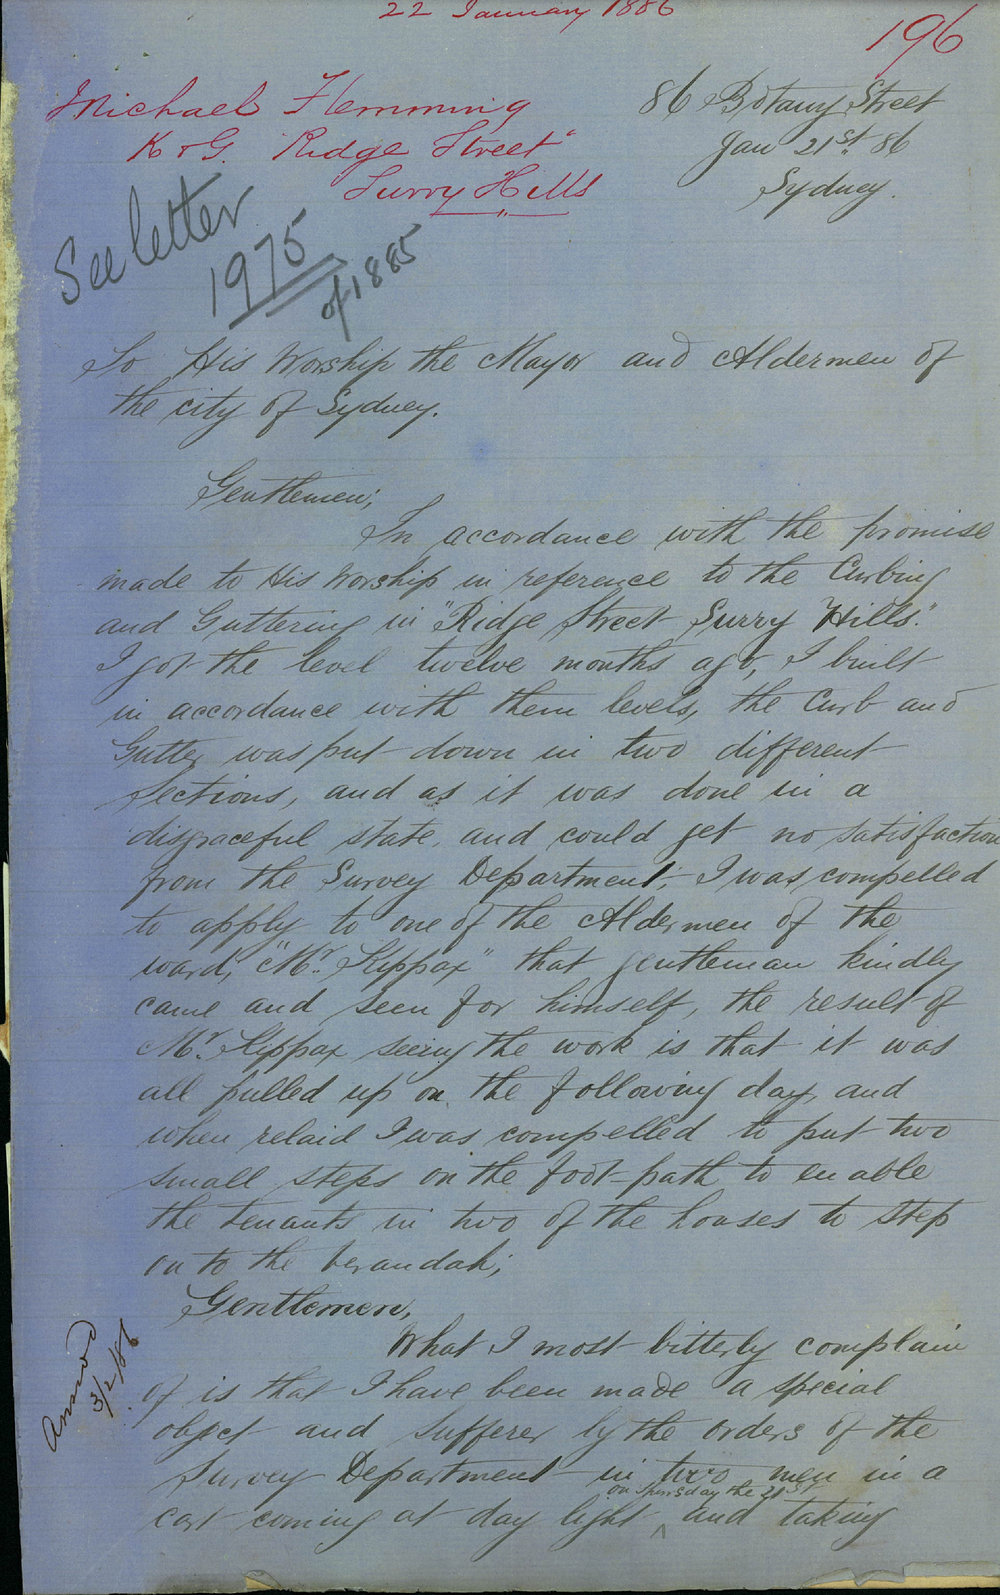 22 January 1886
196
Michael Flemming
K & G. Ridge Street"
Surry Hills
86 Botany Street
Jan 21st. 86
Sydney.
See letter
1975
of 1885
To His Worship the Mayor and Aldermen of
the city of Sydney.
Gentlemen;
In accordance with the promise
made to His Worship in reference to the Curbing
and Guttering in "Ridge Street Surry Hills".
I got the level twelve months ago, I built
in accordance with them levels, the Curb and
Gutter was put down in two different
Sections, and as it was done in a
disgraceful state, and could get no satisfaction
from the Survey Department; I was compelled
to apply to one of the Aldermen of the
ward, "Mr. Kippax" that gentleman kindly
came and seen for himself, the result of
Mr. Kippax seeing the work is that it was
all pulled up on the following day, and
when relaid I was compelled to put two
small steps on the foot-path to enable
the tenants in two of the houses to step
on to the verandah;
Gentlemen,
What I most bitterly complain
of is that I have been made a special
object and sufferer by the orders of the
Survey Department in two men in a
on Thursday the 21st
cart coming at day light ^ and taking
Answd
3/2/86